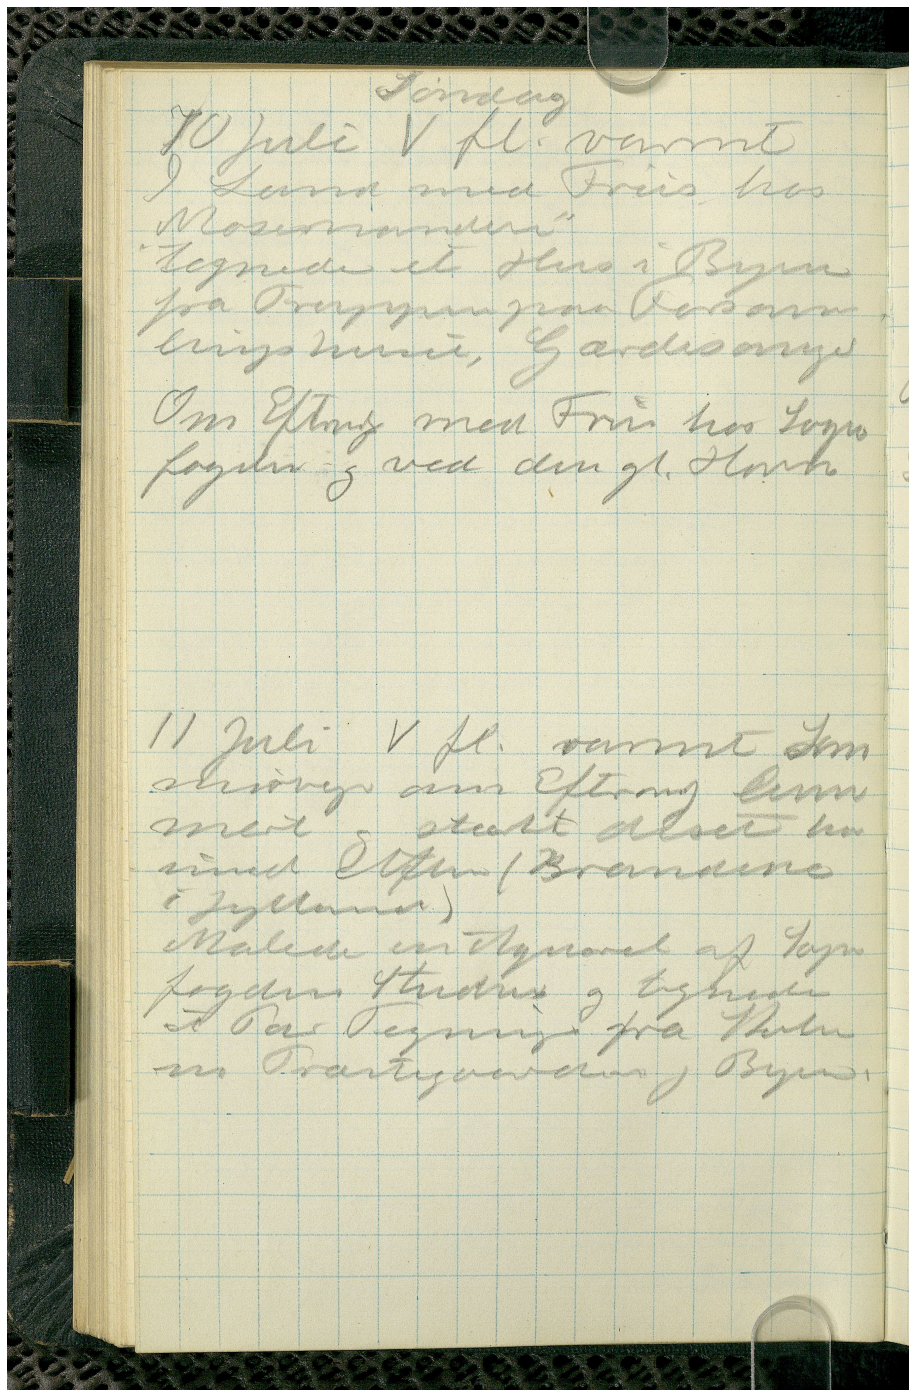 Søndag
10 Juli V fl. varmt
I Land med Friis hos
Mosemanden"
tegnede et Hus i Byen
fra Trappen paa Forsam
lingshuset, Gærdesanger
Om Eftmg med Friis hos Sogne
fogden og ved den gl. Havn
11 Juli V fl. varmt Som
mervejr om Eftmg
og stærkt diset
mod Aften (Brandene
i Jylland)
Malede en Aquarel af Sogne
fogdens og tegnede
et Par Tegninger fra
Præstegaarden Byen.